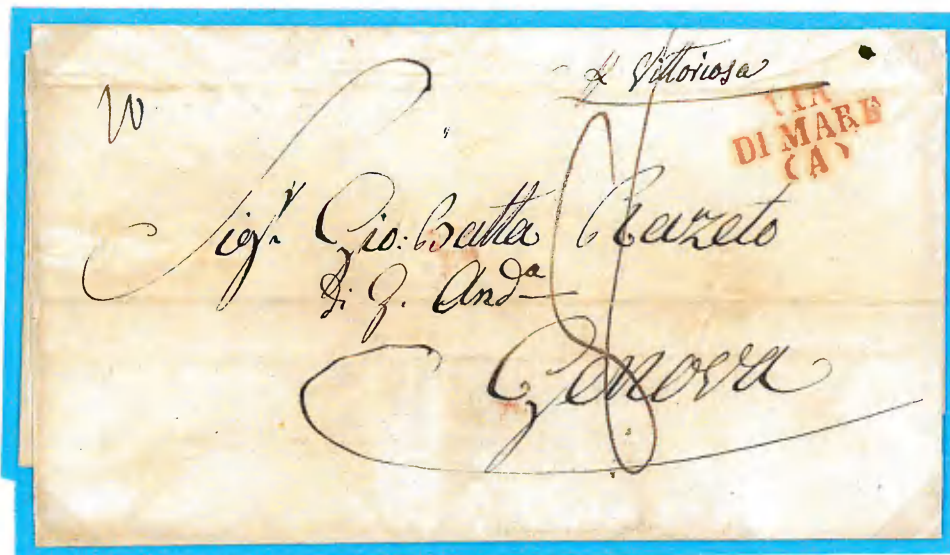 Vittoriosa
VIA
DI MARE
(A)
Sigr. Gio: Batta
Di G. Anda
Genova